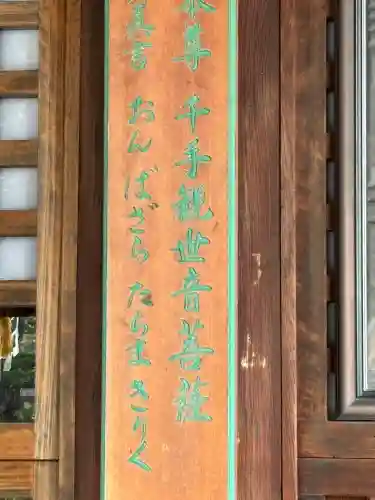 本尊 千手観世音菩薩
真言 おんばざらたらまきりく